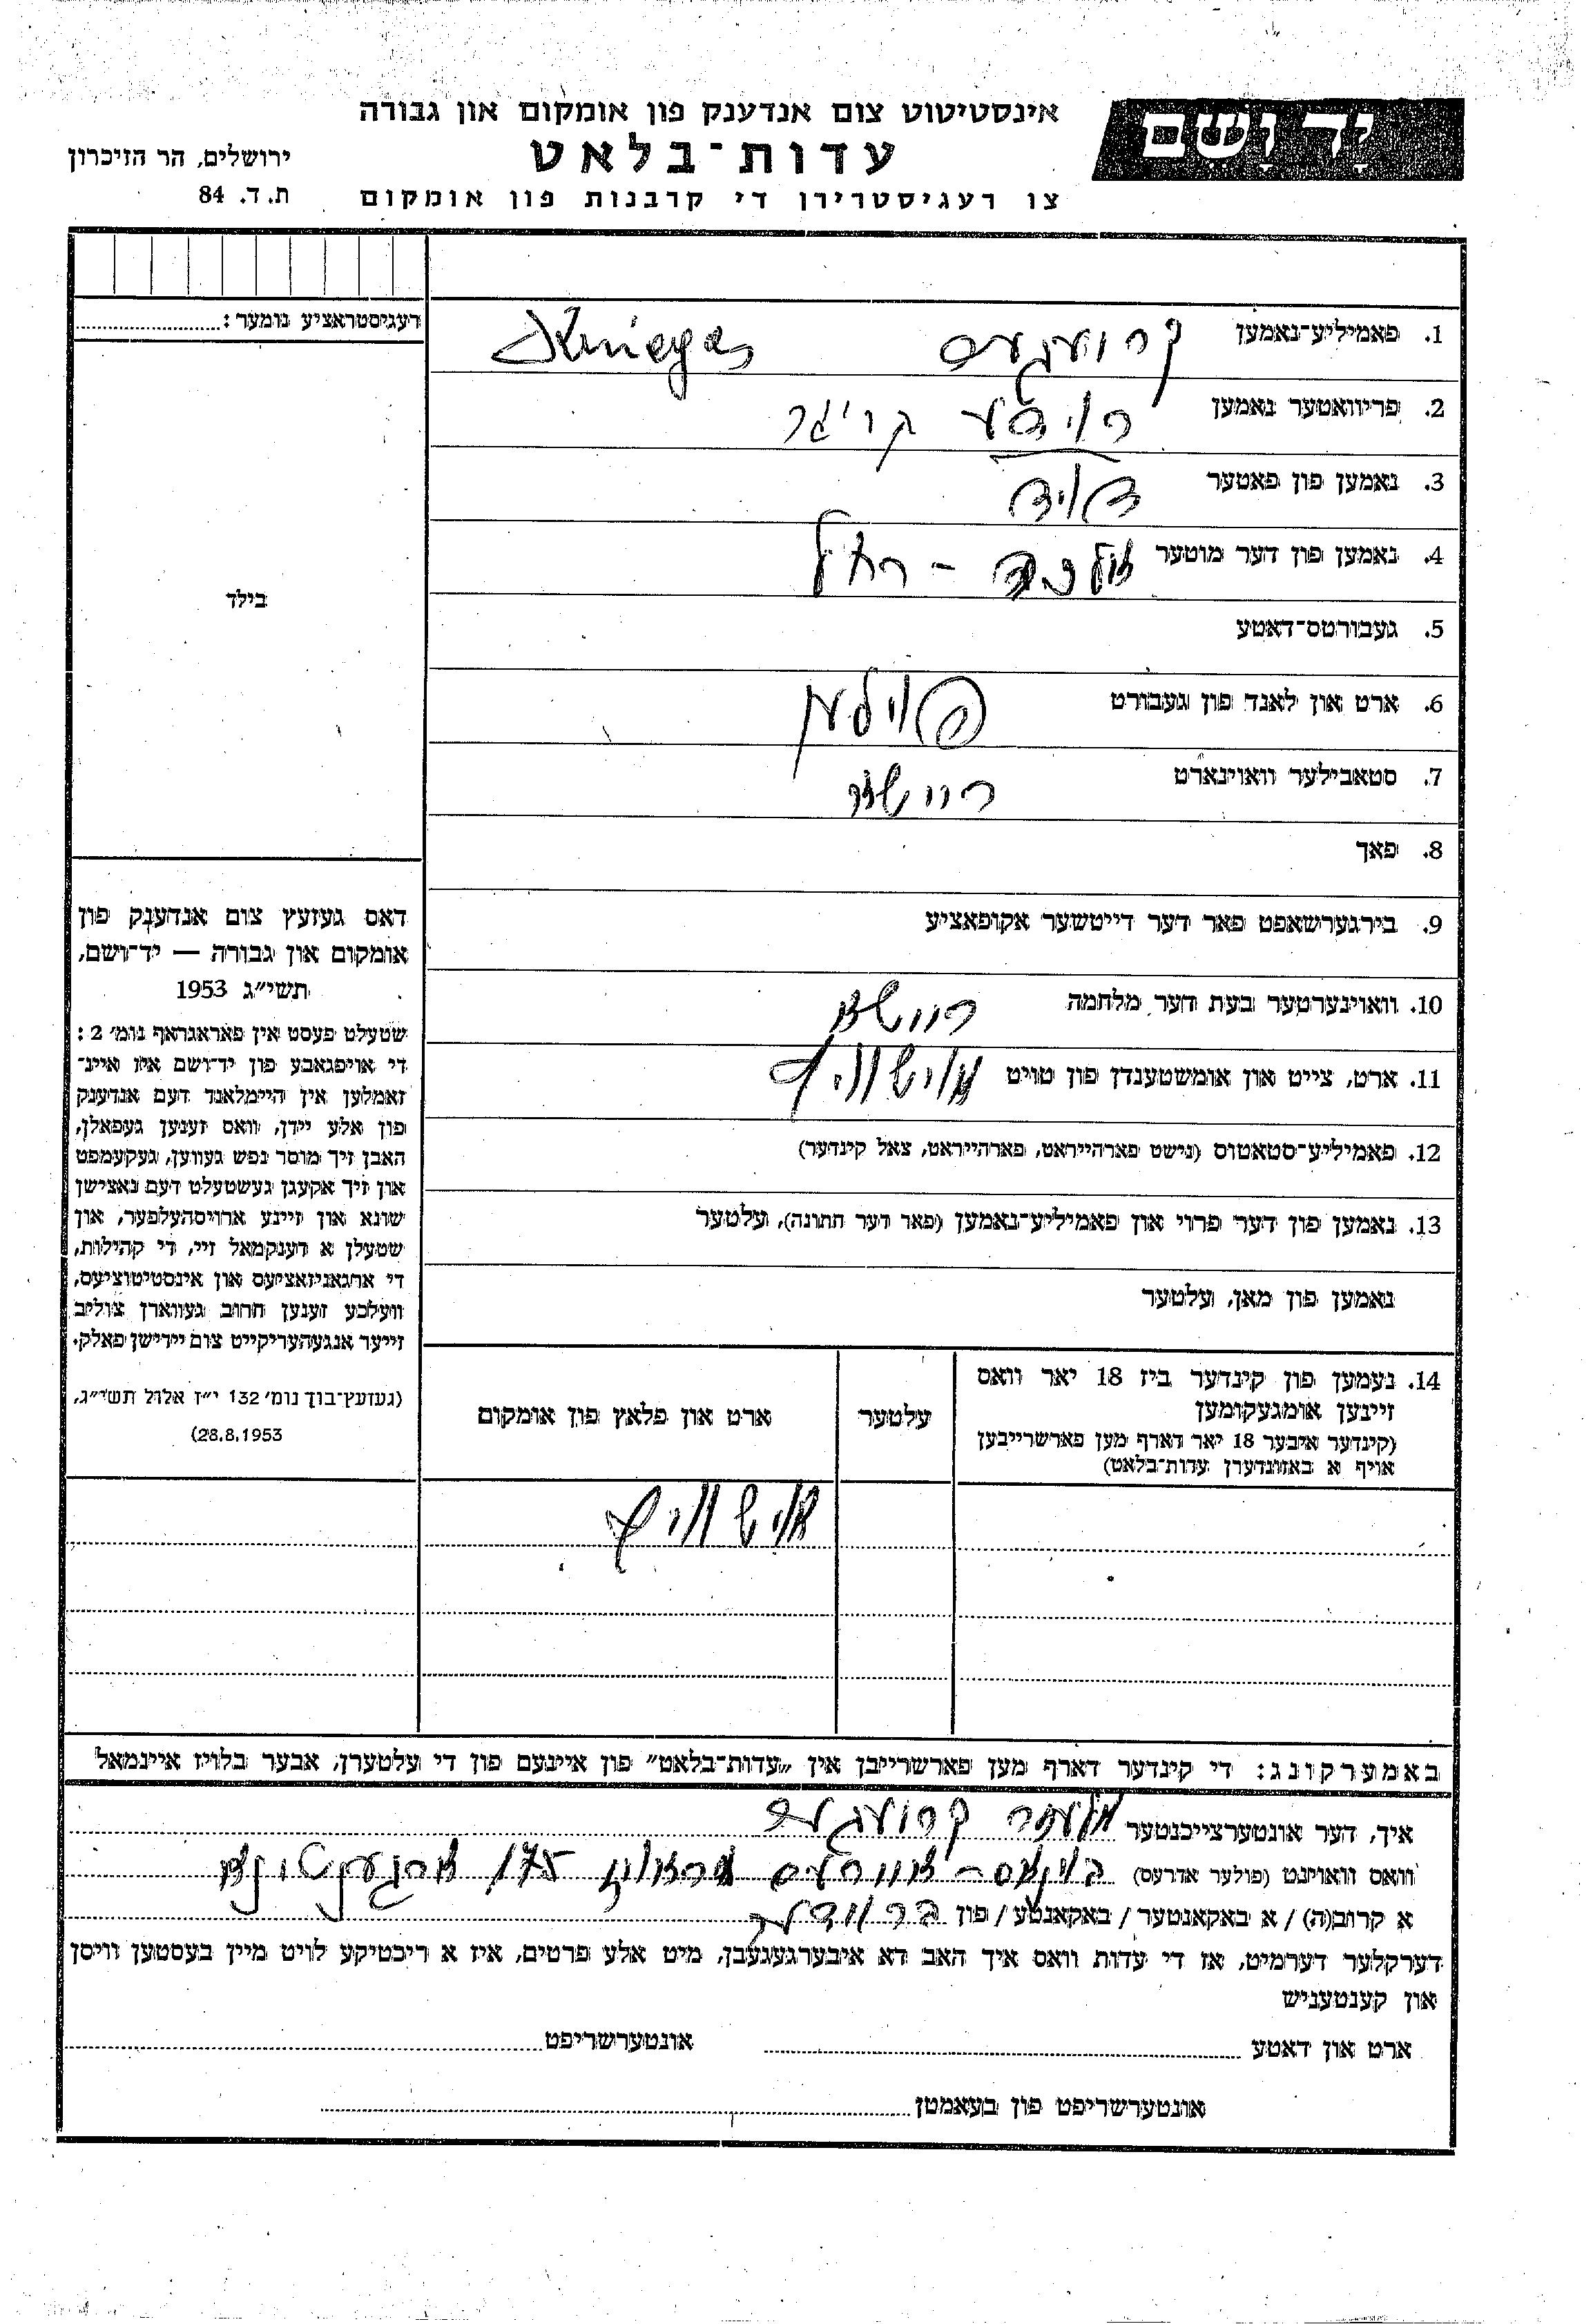 יד ושם
אינסטיטוט צום אנדענק פון אומקום און גבורה
עדות־בלאט
צו רעגיסטרירן די קרבנות פון אומקום
ירושלים, הר הזיכרון
ת. ד. 84
רעגיסטראציע נומער:
בילד
1. פאמיליע־נאמען קרועגעס
2. פריוואטער נאמען קריגר
3. נאמען פון פאטער דוד
4. נאמען פון דער מוטער רחל
5. געבורטס־דאטע
6. ארט און לאנד פון געבורט פוילען
7. סטאבילער וואוינארט
8. פאך
9. בירגערשאפט פאר דער דייטשער אקופאציע
10. וואוינערטער בעת דער מלחמה
11. ארט, צייט און אומשטענדן פון טויט אושוויץ
12. פאמיליע־סטאטוס (נישט פארהייראט, פארהייראט, צאל קינדער)
13. נאמען פון דער פרוי און פאמיליע־נאמען (פאר דער חתונה), עלטער
נאמען פון מאן, עלטער
14. נעמען פון קינדער ביז 18 יאר וואס
זיינען אומגעקומען
(קינדער איבער 18 יאר דארף מען פארשרייבען
אויף א באזונדערן עדות־בלאט)
עלטער
ארט און פלאץ פון אומקום
אושוויץ
דאס געזעץ צום אנדענק פון
אומקום און גבורה — יד־ושם,
תשי״ג 1953
שטעלט פעסט אין פאראגראף נומ׳ 2:
די אויפגאבע פון יד־ושם איז איינ־
זאמלען אין היימלאנד דעם אנדענק
פון אלע יידן, וואס זענען געפאלן,
האבן זיך מוסר נפש געווען, געקעמפט
און זיך אקעגן געשטעלט דעם נאצישן
שונא און זיינע ארויסהעלפער, און
שטעלן א דענקמאל זיי, די קהילות,
די ארגאניזאציעס און אינסטיטוציעס,
וועלכע זענען חרוב געווארן צוליב
זייער אנגעהעריקייט צום יידישן פאלק.
(געזעץ־בוך נומ׳ 132 י״ז אלול תשי״ג,
28.8.1953)
באמערקונג: די קינדער דארף מען פארשרייבן אין „עדות־בלאט״ פון איינעם פון די עלטערן, אבער בלויז איינמאל
איך, דער אונטערצייכנטער קרועגעס
וואס וואוינט (פולער אדרעס) בוענאס־איירעס 175 ארגענטינע
א קרוב(ה) / א באקאנטער / באקאנטע / פון ברודער
דערקלער דערמיט, אז די עדות וואס איך האב דא איבערגעגעבן, מיט אלע פרטים, איז א ריכטיקע לויט מיין בעסטען וויסן
און קענטעניש
ארט און דאטע אונטערשריפט
אונטערשריפט פון בעאמטן